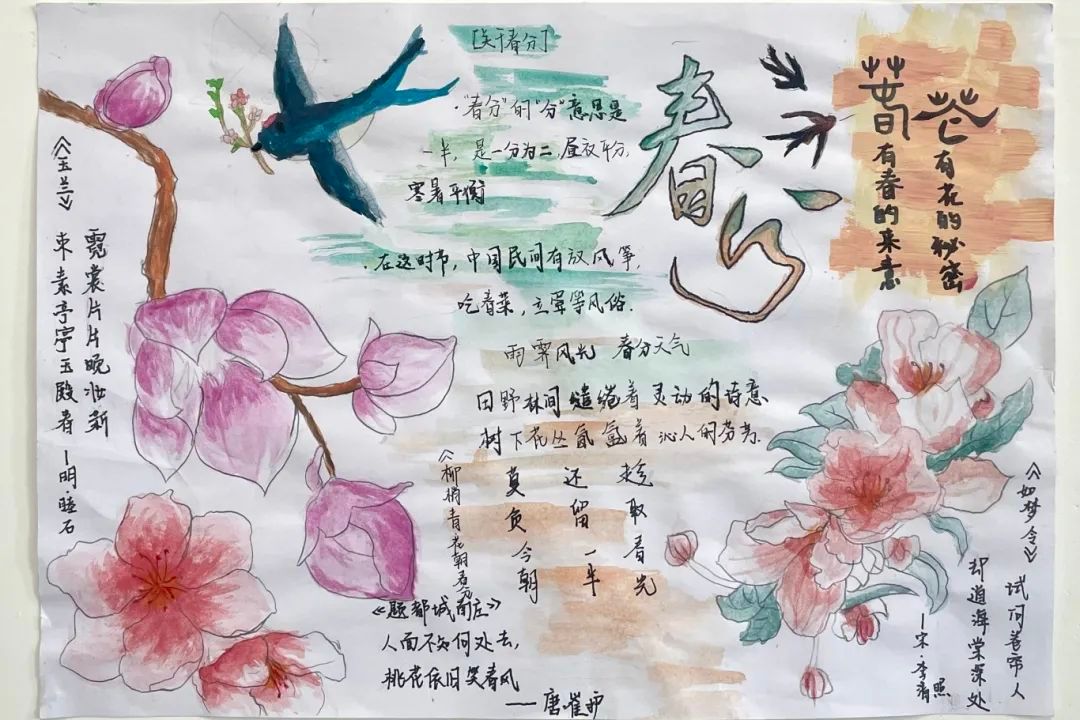 [关于春分]
·"春分"的"分"意思是
一半,是一分为二,昼夜平分,
寒暑平衡
·在这时节,中国民间有放风筝,
吃春菜,立蛋等风俗.
雨霁风光 春分天气
田野林间缱绻着灵动的诗意
树下花丛氤氲着沁人的芬芳.
春分
萅有春的来意
花有花的秘密
《玉兰》
霓裳片片晚妆新
束素亭亭玉殿春
—明·睦石
《柳梢青·花朝春分》
趁取春光
还留一半
莫负今朝
《题都城南庄》
人面不知何处去,
桃花依旧笑春风
——唐·崔护
《如梦令》
试问卷帘人
却道海棠深处
—宋·李清照